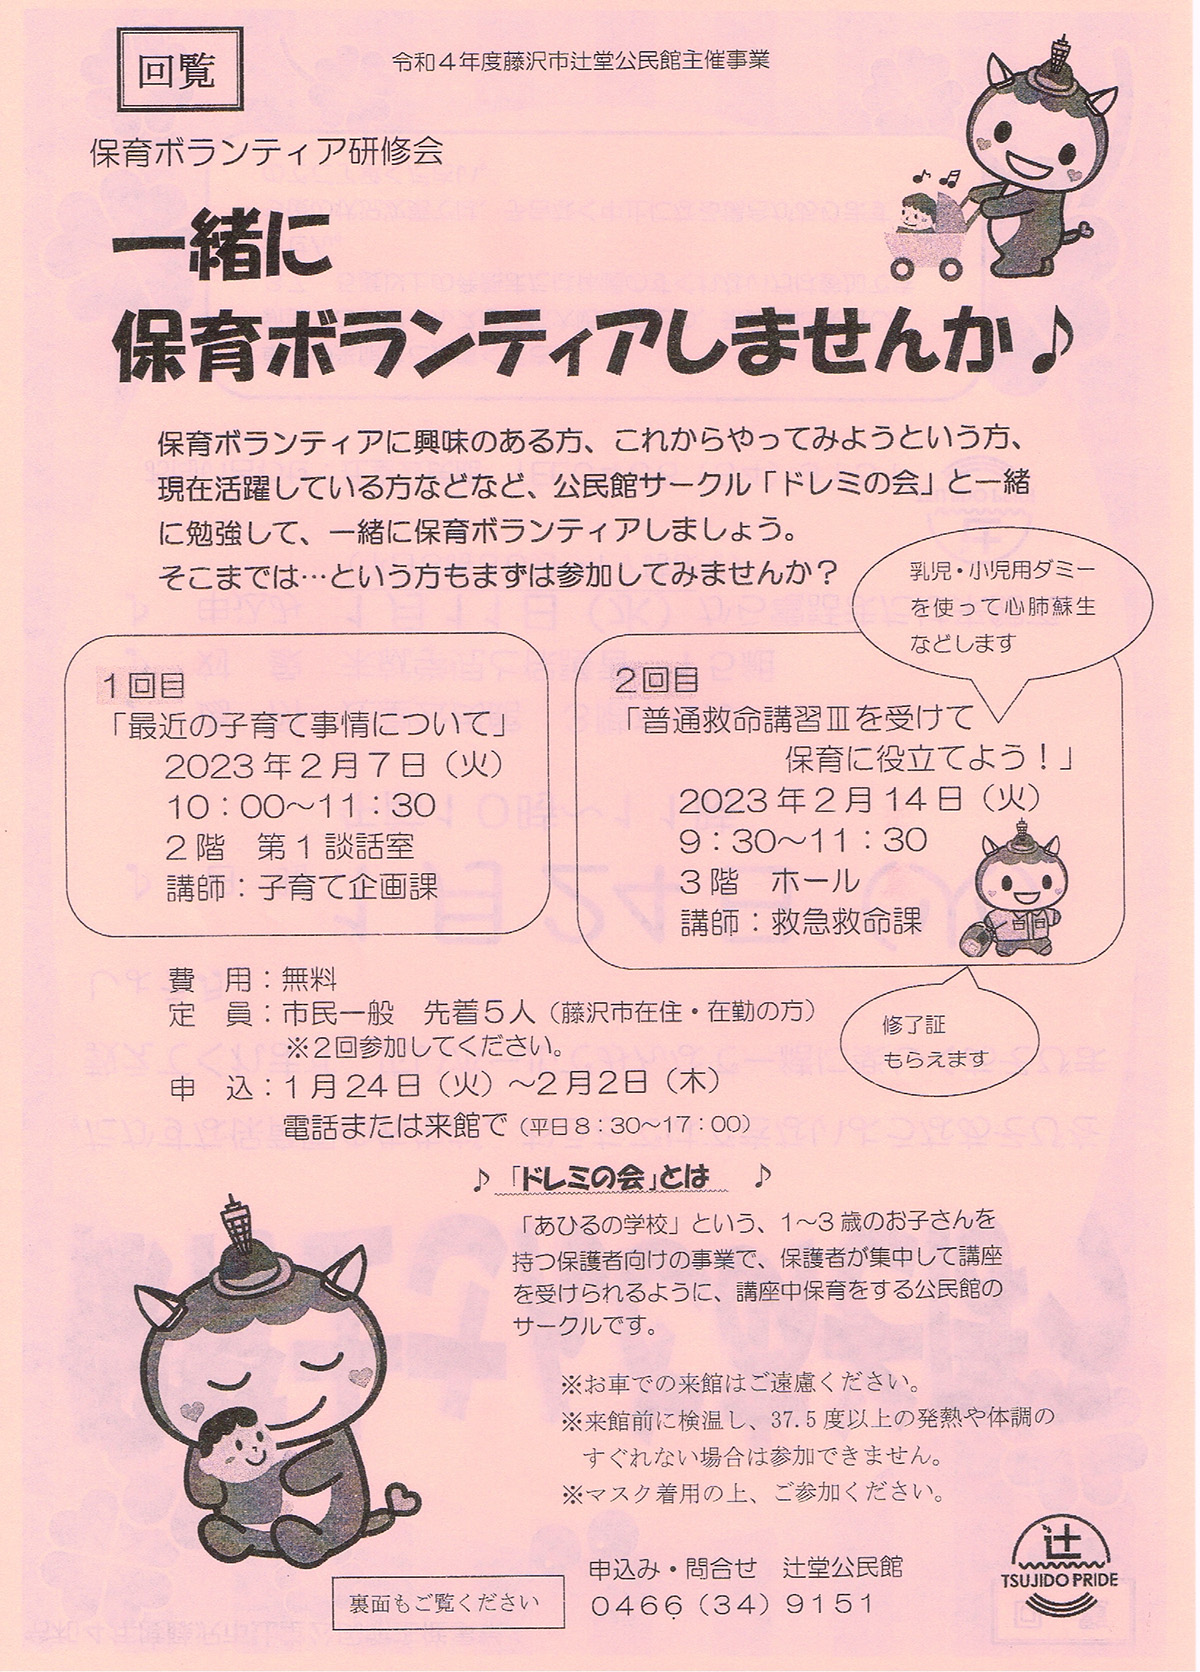 回覧
令和４年度藤沢市辻堂公民館主催事業
保育ボランティア研修会
一緒に
保育ボランティアしませんか♪
保育ボランティアに興味のある方、これからやってみようという方、
現在活躍している方などなど、公民館サークル「ドレミの会」と一緒
に勉強して、一緒に保育ボランティアしましょう。
そこまでは…という方もまずは参加してみませんか？
乳児・小児用ダミー
を使って心肺蘇生
などします
１回目
「最近の子育て事情について」
2023年２月７日（火）
10：00～11：30
２階　第１談話室
講師：子育て企画課
２回目
「普通救命講習Ⅲを受けて
保育に役立てよう！」
2023年２月14日（火）
9：30～11：30
３階　ホール
講師：救急救命課
費　用：無料
定　員：市民一般　先着５人（藤沢市在住・在勤の方）
※２回参加してください。
申　込：１月24日（火）～２月２日（木）
電話または来館で（平日８：30～17：00）
修了証
もらえます
♪「ドレミの会」とは　♪
「あひるの学校」という、１～３歳のお子さんを
持つ保護者向けの事業で、保護者が集中して講座
を受けられるように、講座中保育をする公民館の
サークルです。
※お車での来館はご遠慮ください。
※来館前に検温し、37.5度以上の発熱や体調の
すぐれない場合は参加できません。
※マスク着用の上、ご参加ください。
申込み・問合せ　辻堂公民館
０４６６（34）９１５１
裏面もご覧ください
辻
TSUJIDO PRIDE